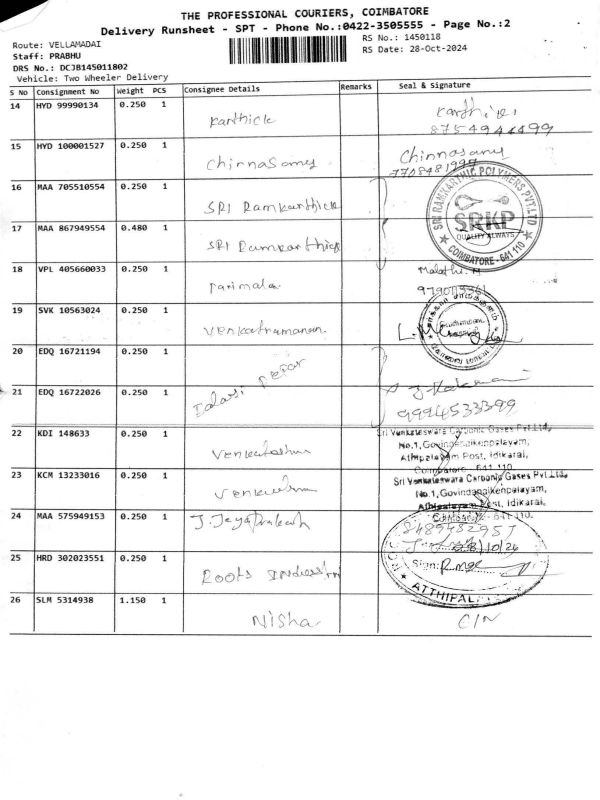 THE PROFESSIONAL COURIERS, COIMBATORE
Delivery Runsheet - SPT - Phone No.:0422-3505555 - Page No.:2
Route: VELLAMADAI
RS No.: 1450118
Staff: PRABHU
RS Date: 28-Oct-2024
DRS No.: DCJB145011802
Vehicle: Two Wheeler Delivery
S No Consignment No Weight PCS Consignee Details Remarks Seal & Signature
14 HYD 99990134 0.250 1 Karthick
8754944499
15 HYD 100001527 0.250 1 Chinnasamy Chinnasamy
16 MAA 705510554 0.250 1 SRI Ramkarthick
SRI RAMKARTHIC POLYMERS PVT.LTD
SRKP
QUALITY ALWAYS
COIMBATORE - 641 110
17 MAA 867949554 0.480 1 SRI Ramkarthick
18 VPL 405660033 0.250 1 Parimala Malathi. M
19 SVK 10563024 0.250 1 Venkatramanan
20 EDQ 16721194 0.250 1
21 EDQ 16722026 0.250 1
9994533399
22 KDI 148633 0.250 1 Venkatesh
Sri Venkateswara Carbonic Gases Pvt.Ltd,
No.1, Govindanaikenpalayam,
Athipalayam Post, Idikarai,
Coimbatore 641 110
23 KCM 13233016 0.250 1
Sri Venkateswara Carbonic Gases Pvt.Ltd,
No.1, Govindanaikenpalayam,
Athipalayam Post, Idikarai,
Coimbatore - 641 110.
24 MAA 575949153 0.250 1 J. Jayaprakash
8489482957
28/10/24
25 HRD 302023551 0.250 1 Roots
Sign:
ATTHIPAL
26 SLM 5314938 1.150 1 Nisha C/N